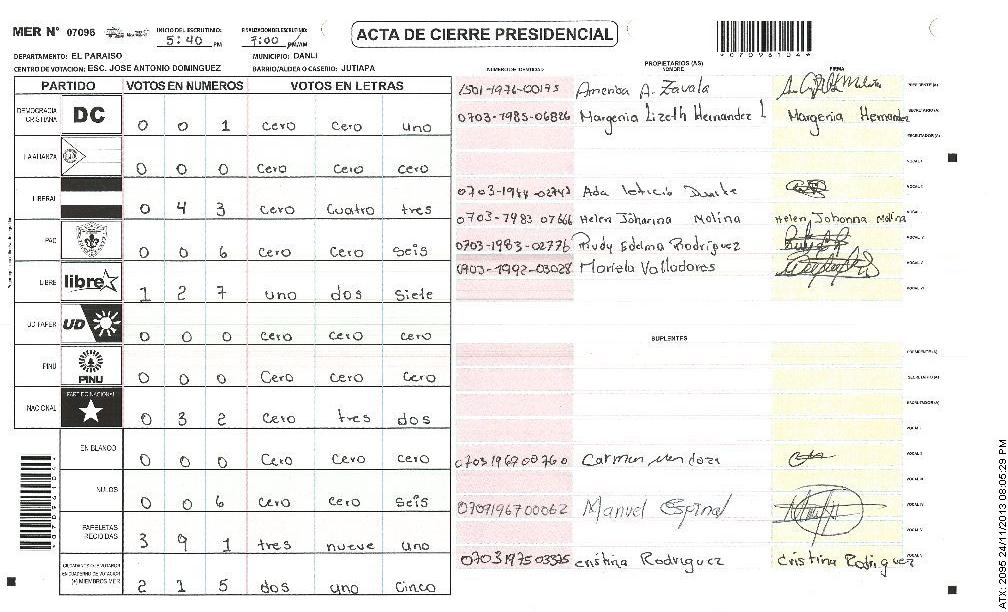 MER N° 07096 INICIO DEL ESCRUTINIO: 5:40 PM FINALIZACION DEL ESCRUTINIO: 7:00 PM/AM
ACTA DE CIERRE PRESIDENCIAL
DEPARTAMENTO: EL PARAISO MUNICIPIO: DANLI
CENTRO DE VOTACION: ESC. JOSE ANTONIO DOMINGUEZ BARRIO/ALDEA O CASERIO: JUTIAPA
PARTIDO VOTOS EN NUMEROS VOTOS EN LETRAS
DEMOCRACIA CRISTIANA DC 0 0 1 cero cero uno
LA ALIANZA 0 0 0 cero cero cero
LIBERAL 0 4 3 cero cuatro tres
PAC 0 0 6 cero cero seis
LIBRE libre 1 2 7 uno dos siete
UD FAPER UD 0 0 0 cero cero cero
PINU PINU 0 0 0 cero cero cero
NACIONAL PARTIDO NACIONAL 0 3 2 cero tres dos
EN BLANCO 0 0 0 cero cero cero
NULOS 0 0 6 cero cero seis
PAPELETAS RECIBIDAS 3 9 1 tres nueve uno
(+) MIEMBROS MER 2 1 5 dos uno cinco
PROPIETARIOS (AS)
NUMERO DE IDENTIDAD NOMBRE FIRMA
1501-1976-00195 America A. Zavala PRESIDENTE (A)
0703-1985-06826 Margenia Lizeth Hernandez L Margenia Hernandez SECRETARIO (A)
ESCRUTADOR (A)
VOCAL I
Ada leticia Duarte
0703-1983 07666 Helen Joharina Molina Helen Johanna Molina
0703-1983-02776 Rudy Edelma Rodriguez
0903-1992-03028 Mariela Valladares
SUPLENTES
PRESIDENTE (A)
SECRETARIO (A)
ESCRUTADOR (A)
0703196900760 Carmen Mendoza
0709196700062 Manuel Espinal
0703197503375 Cristina Rodriguez Cristina Rodriguez
ATX: 2095 24/11/2013 08:05:29 PM